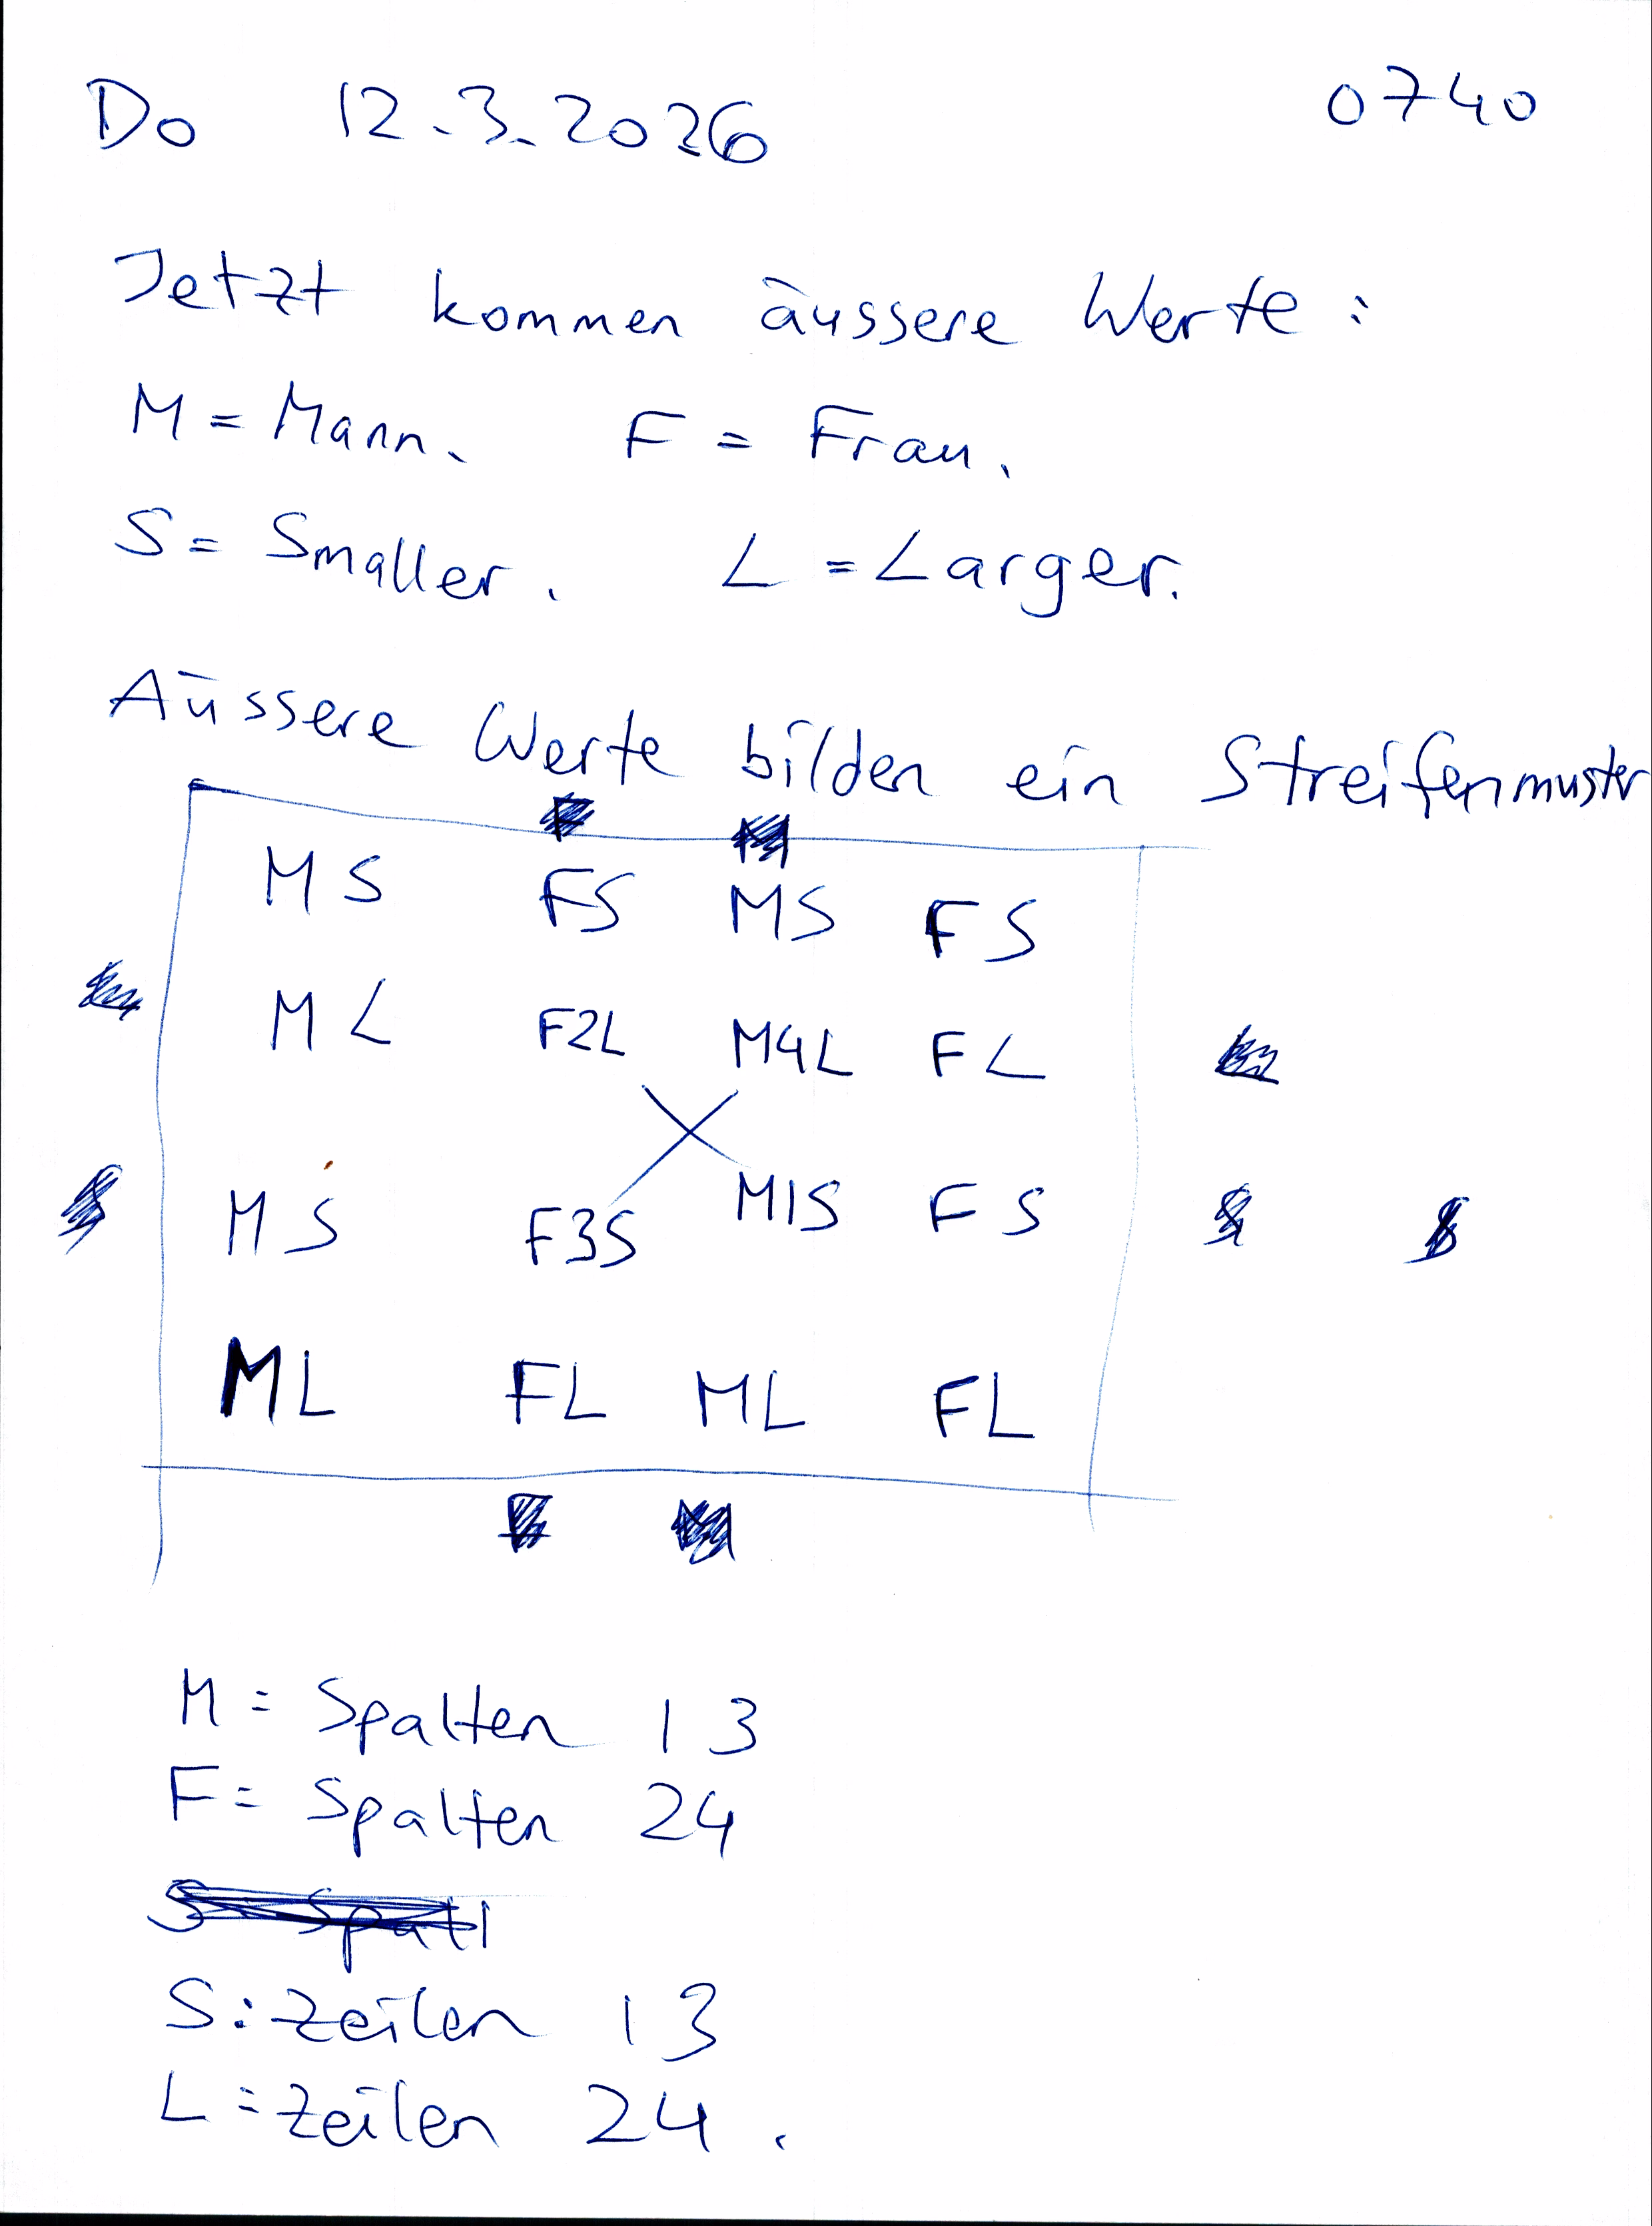 Do 12.3.2026 0740
Jetzt kommen äussere Werte:
M = Mann. F = Frau.
S = Smaller. L = Larger.
Äussere Werte bilden ein Streifenmuster
MS FS MS FS
ML F2L M4L FL
MS F3S M1S FS
ML FL ML FL
M = Spalten 13
F = Spalten 24
S: Zeilen 13
L = Zeilen 24.